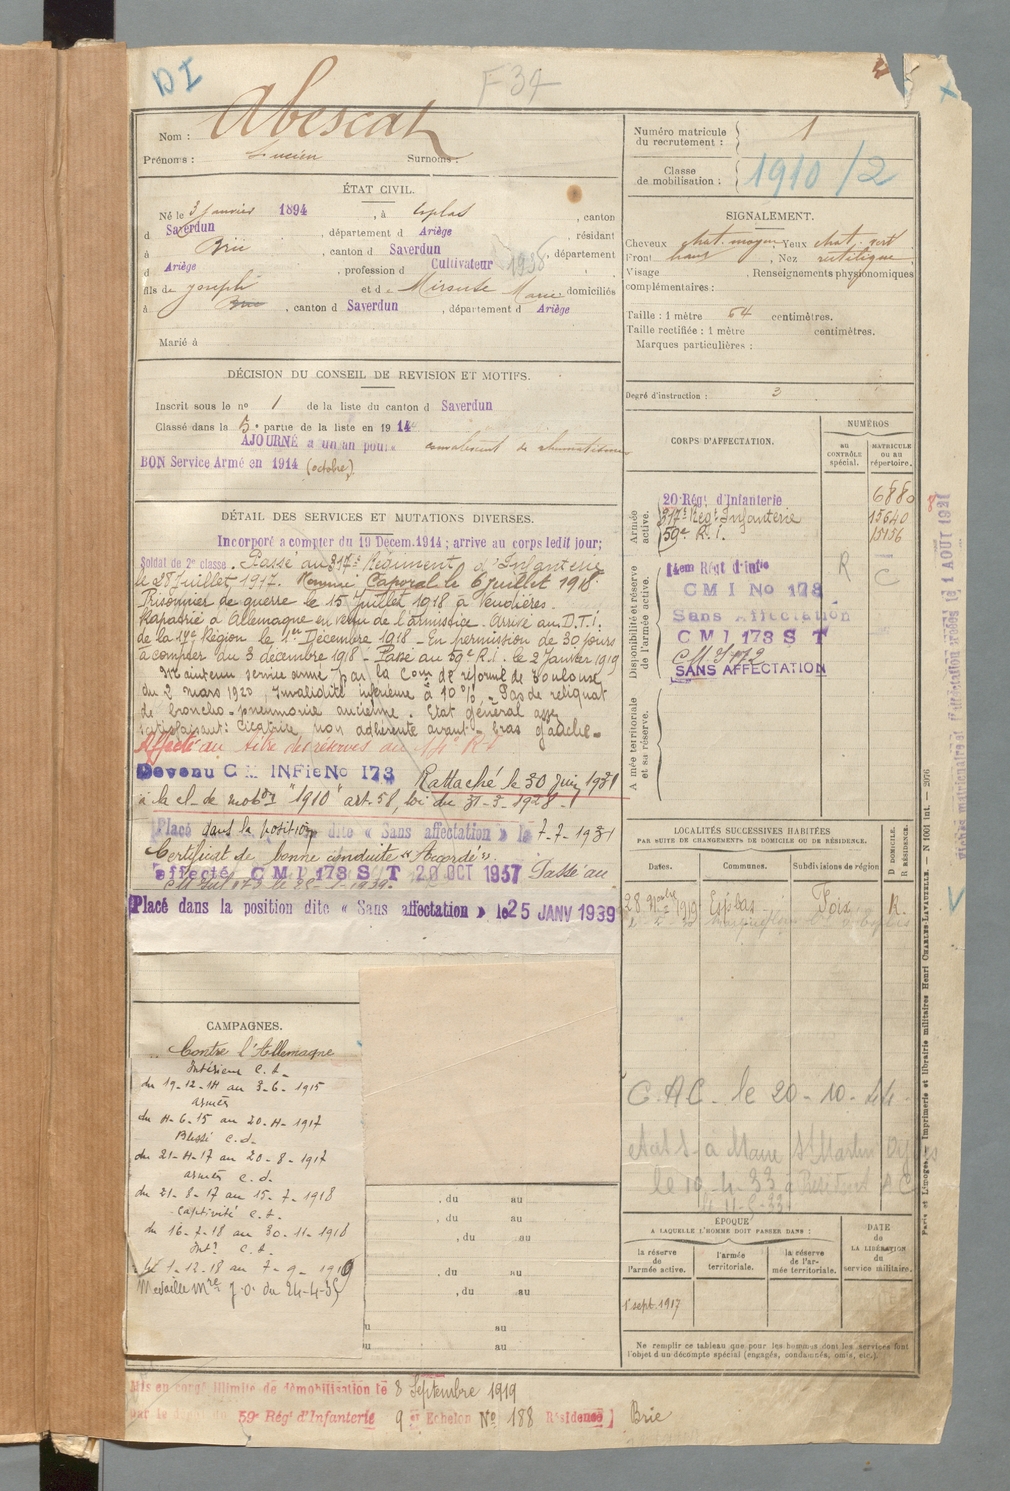 DI
F34
Nom : Abescat
Prénoms : Lucien Surnoms :
Numéro matricule du recrutement : 1
Classe de mobilisation : 1910/2
ÉTAT CIVIL.
Né le 3 janvier 1894, à Esplas, canton
d Saverdun, département d Ariège, résidant
à Brie, canton d Saverdun, département
d Ariège, profession d Cultivateur 1936
fils de Joseph et de Marie domiciliés
à Brie, canton d Saverdun, département d Ariège
Marié à
SIGNALEMENT.
Cheveux chat. moyen Yeux chat. vert
Front haut, Nez rectiligne
Visage , Renseignements physionomiques
complémentaires :
Taille : 1 mètre 64 centimètres.
Taille rectifiée : 1 mètre centimètres.
Marques particulières :
Degré d'instruction : 3
DÉCISION DU CONSEIL DE REVISION ET MOTIFS.
Inscrit sous le n° 1 de la liste du canton d Saverdun
Classé dans la 5e partie de la liste en 1914
AJOURNÉ à un an pour convalescent de rhumatismes
BON Service Armé en 1914 (octobre)
DÉTAIL DES SERVICES ET MUTATIONS DIVERSES.
Incorporé à compter du 19 Décem. 1914 ; arrivé au corps ledit jour ;
Soldat de 2e classe. Passé au 317e Régiment d'Infanterie
le 28 Juillet 1917. Nommé Caporal le 6 Juillet 1918
Prisonnier de guerre le 15 Juillet 1918 à Vendières.
Rapatrié d'Allemagne en vertu de l'armistice. Arrivé au D.T.I.
de la 17e Région le 1er Décembre 1918. En permission de 30 jours
à compter du 3 décembre 1918. Passé au 59e R.I. le 2 Janvier 1919
Maintenu service armé par la Com. de réforme de Toulouse
du 2 mars 1920, Invalidité inférieure à 10%. Pas de reliquat
de broncho-pneumonie ancienne. Etat général assez
satisfaisant. Cicatrice non adhérente avant-bras gauche.
Affecté au titre des réserves au 14e R.I.
Devenu C M INFie No 173 Rattaché le 30 Juin 1931
à la cl. de mobon "1910" art. 58, loi du 31-3-1928
Placé dans la position dite « Sans affectation » le 7-7-1931
Certificat de bonne conduite "Accordé".
affecté C M I 173 S T 20 OCT 1937 Passé au
Placé dans la position dite « Sans affectation » le 25 JANV 1939
CORPS D'AFFECTATION.
NUMÉROS
AU CONTRÔLE spécial.
MATRICULE OU AU répertoire.
Armée active.
20 Régt d'Infanterie 6880
317e Régt Infanterie 15640
59e R.I. 15156
Disponibilité et réserve de l'armée active.
14em Régt d'infie
R
C M I No 173
Sans Affectation
C M I 173 S T
SANS AFFECTATION
Armée territoriale et sa réserve.
LOCALITÉS SUCCESSIVES HABITÉES
PAR SUITE DE CHANGEMENTS DE DOMICILE OU DE RÉSIDENCE.
Dates. Communes. Subdivisions de région D DOMICILE. R RÉSIDENCE.
28 1919 Esplas Foix R.
C.A.C. le 20-10-44
le 19-4-33
CAMPAGNES.
Contre l'Allemagne
Intérieur C.S.
du 19-12-14 au 3-6-1915
armées
du 4-6-15 au 20-4-1917
Blessé C.d.
du 21-4-17 au 20-8-1917
armées C.d.
du 21-8-17 au 15-7-1918
Captivité C.S.
du 16-7-18 au 30-11-1918
Intr C.S.
du 1-12-18 au 7-9-1919
Médaille Mre J.O. du 24-4-35
, du au
, du au
, du au
, du au
, du au
u au
u au
ÉPOQUE
A LAQUELLE L'HOMME DOIT PASSER DANS :
la réserve de l'armée active. l'armée territoriale. la réserve de l'armée territoriale.
DATE de LA LIBÉRATION du service militaire.
1er sept. 1917
Ne remplir ce tableau que pour les hommes dont les services font
l'objet d'un décompte spécial (engagés, condamnés, omis, etc.).
Mis en congé illimité de démobilisation le 8 Septembre 1919
par le dépôt du 59e Régt d'Infanterie 9e Echelon No 188 Résidence ] Brie
Paris et Limoges. — Imprimerie et librairie militaires Henri CHARLES-LAVAUZELLE.